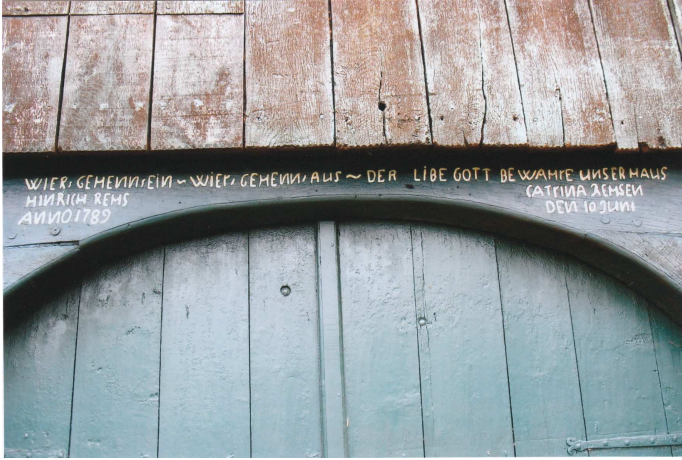 WIER, GEHENN, EIN ~ WIER, GEHENN, AUS ~ DER LIBE GOTT BEWAHRE UNSER HAUS
HINRICH REHS CATRINA REHSEN
ANNO 1789 DEN 10 JUNI